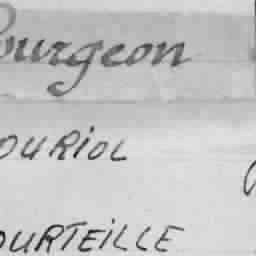 ourgeon
OURIOL
OURTEILLE